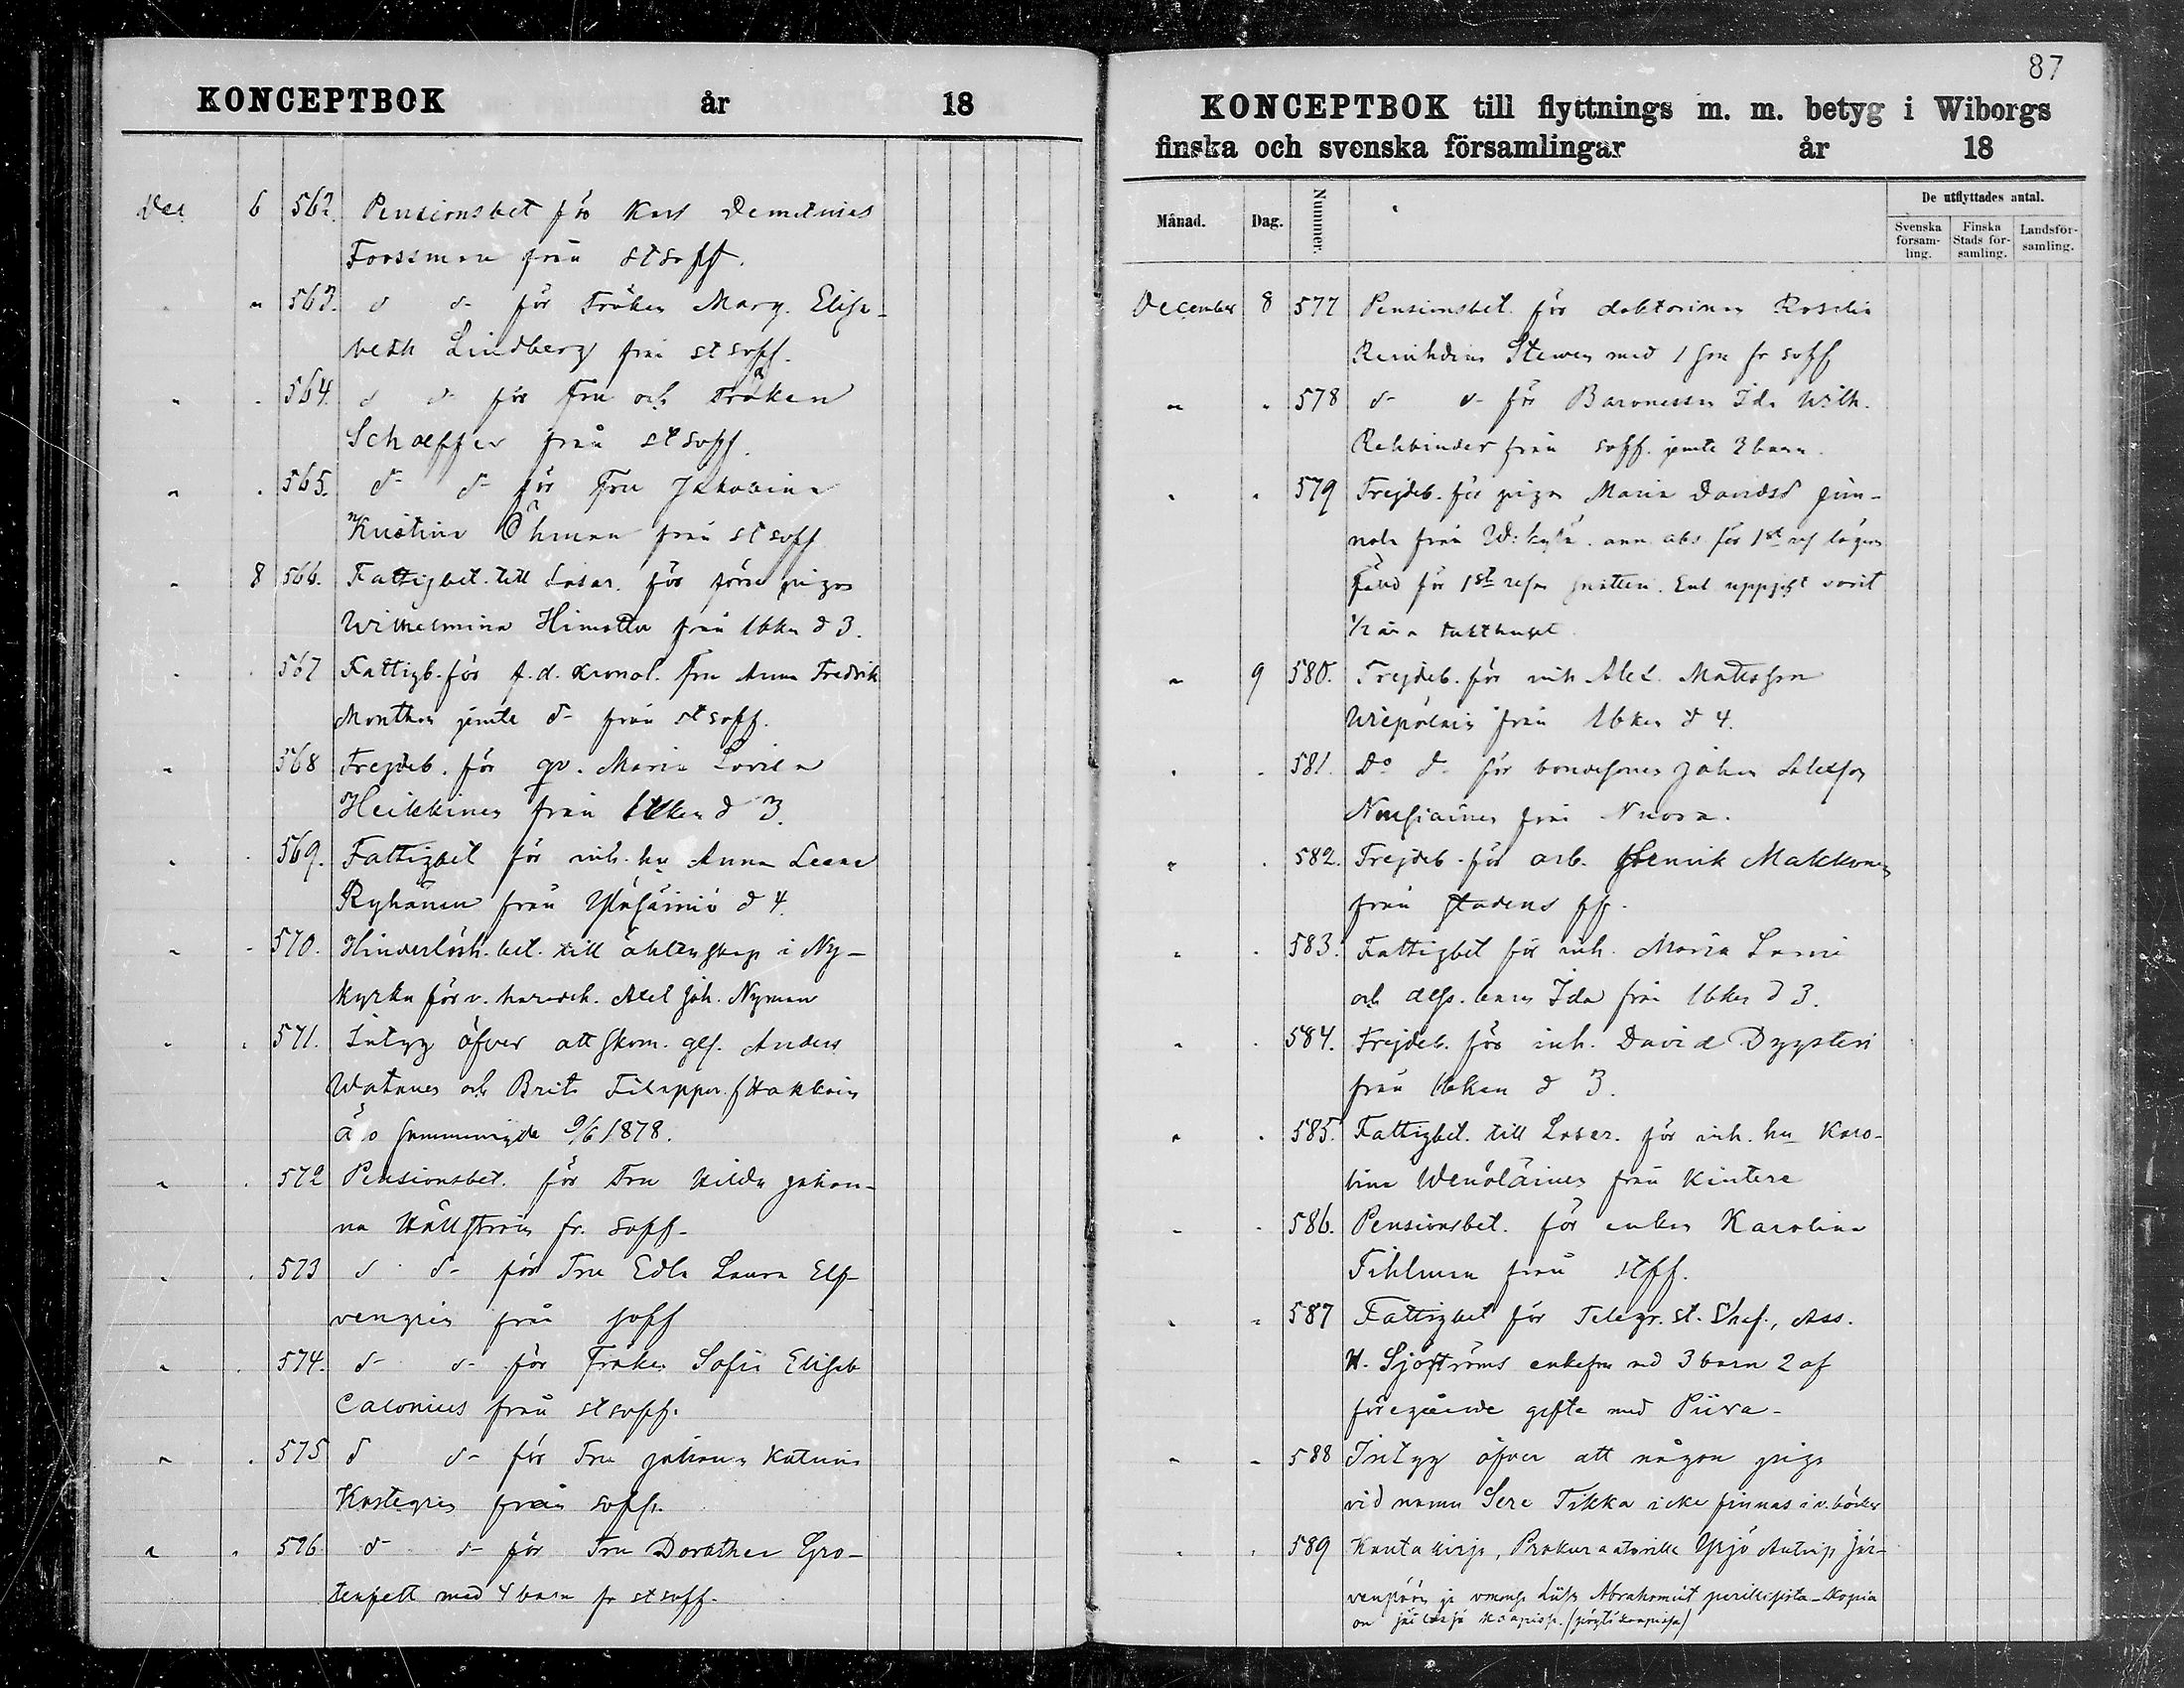 KONCEPTBOK år 18
Dec 6 562. Pensionsbet för Karl Demetrius
Forssman från st soff.
" " 563. d d för Fröken Marg. Elisa-
beth Lindberg från st soff.
" " 564. d d för Fru och Fröken
Schæffer från st soff.
" " 565. d d för Fru Jakobina
Kristina Öhman från st soff
" 8 566. Fattigbet. till Lasar. för pigan
Wilhelmina Himottu från d 3.
" " 567 Fattigb. för f. d. kronol. fru Anna Fredrik
jemte d från st soff.
" " 568 Frejdeb. för qv. Maria Lovisa
Heikkinen från d 3.
" " 569. Fattigbet för inh. hu Anna Leena
Ryhänen från d 4.
" " 570. Hinderlösh. bet. till äktenskap i Ny-
kyrka för v. häradsh. Axel Joh. Nyman
" " 571. Intyg öfver att skom. ges. Anders
Watanen och Brita Filippa
äro sammanvigda 9/6 1878.
" " 572 Pensionsbet. för Fru Hilda Johan-
na Hällström fr. soff.
" " 573 d d för Fru Edla Laura Elf-
vengren från soff
" " 574. d d för Fröken Sofie Elisab
Calonius från st soff.
" " 575 d d för Fru Johanna Katrina
från soff.
" " 576 d d för Fru Dorothea Gro-
tenfelt med 4 barn fr st soff.
87
KONCEPTBOK till flyttnings m. m. betyg i Wiborgs
finska och svenska församlingar år 18
Månad. Dag. Nummer. De utflyttades antal.
Svenska församling. Finska Stads församling. Landsförsamling.
December 8 577 Pensionsbet. för doktorinnan Rosalie
Stewen med 1 son fr soff
" " 578 d d för Baronessan Ida Wilh.
Rehbinder från soff. jemte 3 barn.
" " 579 Frejdeb. för pigan Maria Davidsd
från W: kylä. ann. abs. för 1st
för 1st resan snatteri. Enl uppgift varit
1/2 år tukthuset.
" 9 580. Frejdeb. för inh Alex. Matsson
från d 4.
" " 581. Do d för bondesonen Johan Alexson
Nuusiainen från Nuora.
" " 582. Frejdeb. för arb. Henrik Makkonen
från stadens ff.
" " 583. Fattigbet för inh. Maria
och dess barn Ida från d 3.
" " 584. Frejdeb. för inh. David Dyysteri
från d 3.
" " 585. Fattigbet. till Lasar. för inh. hu Karo-
lina Wenäläinen från Kintere
" " 586. Pensionsbet. för enkan Karolina
Fihlman från st ff.
" " 587 Fattigbet för Telegr. st. Chef., Ass.
H. Sjöströms enkefru med 3 barn 2 af
föregående gifte med Piira.
" " 588 Intyg öfver att någon piga
vid namn Sere Tikka icke finnas i v. böcker
" " 589 Kantakirja, Prokuraatorille Yrjö Jär-
Abrahamit perillisistä. Kopia
on